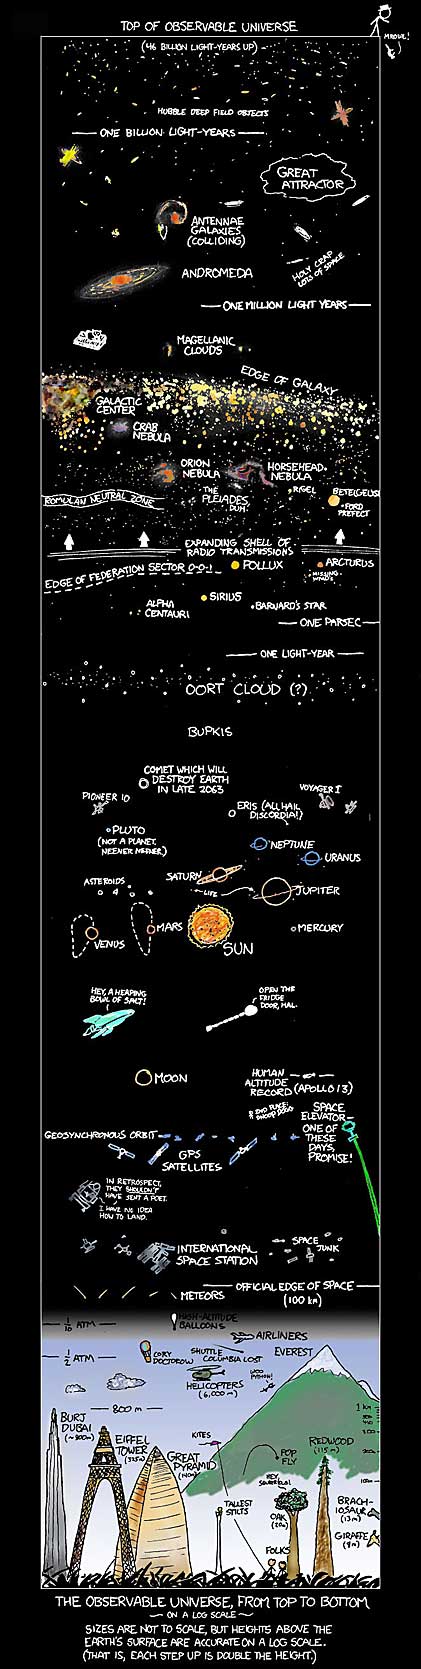 TOP OF OBSERVABLE UNIVERSE
(46 BILLION LIGHT-YEARS UP)
MROWL!
HUBBLE DEEP FIELD OBJECTS
ONE BILLION LIGHT-YEARS
GREAT
ATTRACTOR
ANTENNAE
GALAXIES
(COLLIDING)
HOLY CRAP
LOTS OF SPACE
ANDROMEDA
ONE MILLION LIGHT YEARS
MAGELLANIC
CLOUDS
EDGE OF GALAXY
GALACTIC
CENTER
CRAB
NEBULA
ORION
NEBULA
HORSEHEAD
NEBULA
THE
PLEIADES
DUH.
RIGEL
BETELGEUSE
FORD
PREFECT
ROMULAN NEUTRAL ZONE
EXPANDING SHELL OF
RADIO TRANSMISSIONS
EDGE OF FEDERATION SECTOR 0-0-1
POLLUX
ARCTURUS
ALPHA
CENTAURI
SIRIUS
BARNARD'S STAR
ONE PARSEC
ONE LIGHT-YEAR
OORT CLOUD (?)
BUPKIS
COMET WHICH WILL
DESTROY EARTH
IN LATE 2063
PIONEER 10
VOYAGER I
ERIS (ALL HAIL
DISCORDIA!)
PLUTO
(NOT A PLANET.
NEENER NEENER)
NEPTUNE
URANUS
SATURN
ASTEROIDS
LIFE
JUPITER
VENUS
MARS
SUN
MERCURY
HEY, A HEAPING
BOWL OF SALT!
OPEN THE
FRIDGE
DOOR, HAL.
MOON
HUMAN
ALTITUDE
RECORD (APOLLO 13)
2ND PLACE:
SNOOP DOGG
SPACE
ELEVATOR—
ONE OF
THESE
DAYS,
PROMISE!
GEOSYNCHRONOUS ORBIT
GPS
SATELLITES
IN RETROSPECT,
THEY SHOULDN'T
HAVE SENT A POET.
I HAVE NO IDEA
HOW TO LAND.
INTERNATIONAL
SPACE STATION
SPACE
JUNK
OFFICIAL EDGE OF SPACE
(100 km)
METEORS
1/10 ATM
HIGH-ALTITUDE
BALLOONS
AIRLINERS
1/2 ATM
CORY
DOCTOROW
SHUTTLE
COLUMBIA LOST
EVEREST
HELICOPTERS
(6,000 m)
WOO
PYTHON!
800 m
1 km
BURJ
DUBAI
(~800m)
EIFFEL
TOWER
(325m)
GREAT
PYRAMID
(140m)
KITES
POP
FLY
REDWOOD
(115 m)
TALLEST
STILTS
HEY,
SQUIRRELS!
OAK
(20m)
BRACH-
IOSAUR
(13m)
GIRAFFE
FOLKS
THE OBSERVABLE UNIVERSE, FROM TOP TO BOTTOM
~ ON A LOG SCALE ~
SIZES ARE NOT TO SCALE, BUT HEIGHTS ABOVE THE
EARTH'S SURFACE ARE ACCURATE ON A LOG SCALE.
(THAT IS, EACH STEP UP IS DOUBLE THE HEIGHT.)